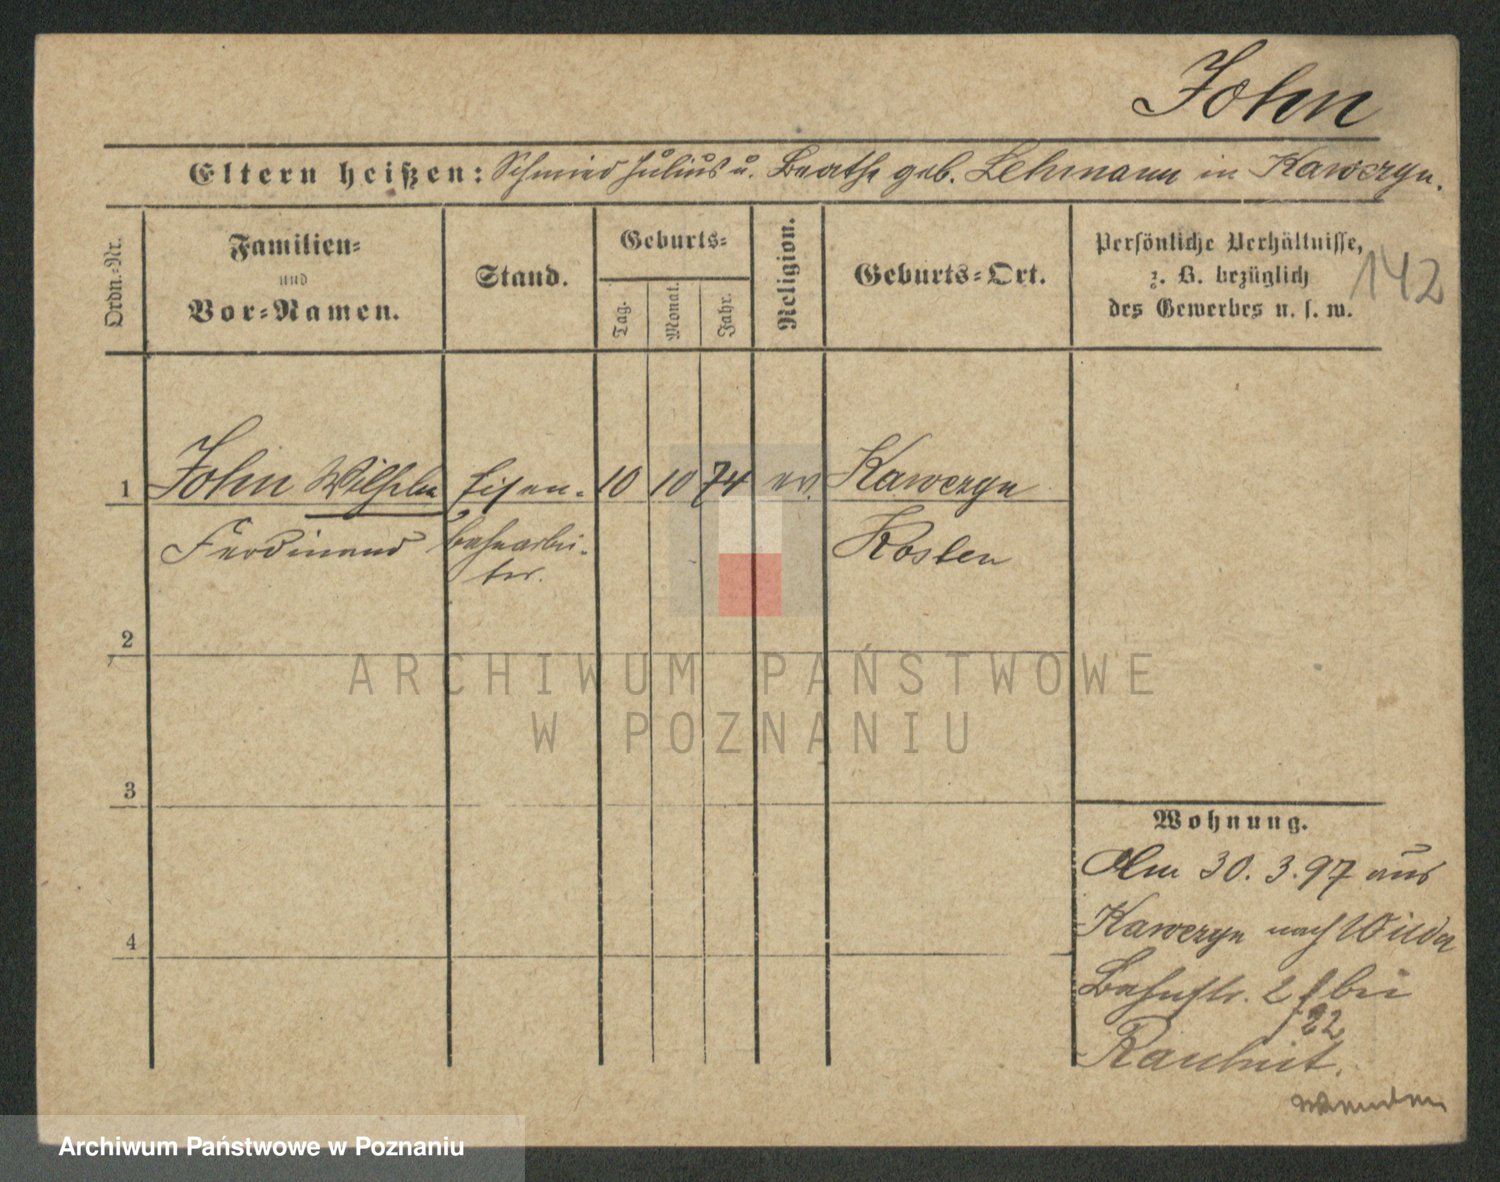 John
Eltern heißen: Schmied Julius u. Beathe geb. Lehmann in Kawczyn.
142
Ordn.-Nr.
Familien-
und
Vor-Namen.
Stand.
Geburts-
Tag.
Monat.
Jahr.
Religion.
Geburts-Ort.
Persönliche Verhältnisse,
z. B. bezüglich
des Gewerbes u. s. w.
1 John Wilhelm Eisen- 10 10 74 ev. Kawczyn
Ferdinand bahnarbei- Kosten
ter.
2
3
4
ARCHIWUM PAŃSTWOWE
W POZNANIU
Wohnung.
Am 30.3.97 aus
Kawczyn nach Wilda
Bahnstr. 2 bei
22
wenden
Archiwum Państwowe w Poznaniu